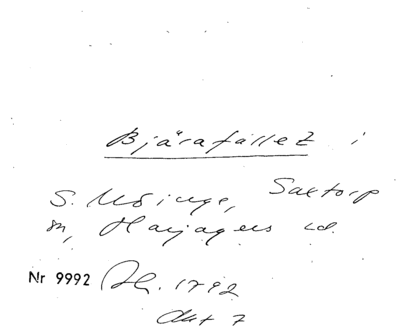 Bjärafallet i
S. Möinge, Saxtorp
sn, Harjagers hd.
Nr 9992 Sk. 1792
Akt 7